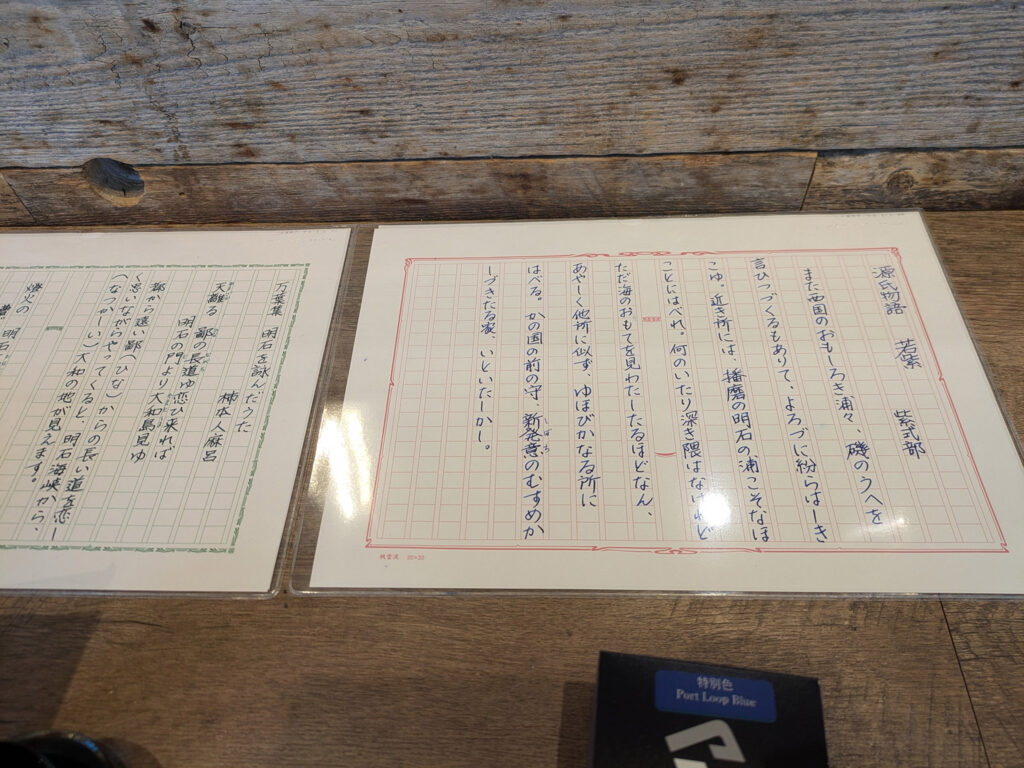 源氏物語 若紫 紫式部
また西国のおもしろき浦々、磯のうへを
言ひつづくるもありて、よろづに紛らはしき
こゆ。近き所には、播磨の明石の浦こそなほ
ことにはべれ。何のいたり深き隈はなけれど
ただ海のおもてを見わたしたるほどなん、
あやしく他所に似ず、ゆほびかなる所に
はべる。かの国の前の守、新発意のむすめか
しづきたる家、いといたしかし。
しぼち
桃雪流 20×20
万葉集 明石を詠んだうた
柿本人麻呂
天離る 鄙の長道ゆ恋ひ来れば
明石の門より大和島見ゆ
都から遠い鄙(ひな)からの長い道を恋し
く思いながらやってくると、明石海峡から、
(なつかしい)大和の地が見えます。
燈火の
明石
特別色
Port Loop Blue